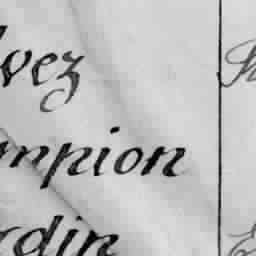 vez
mpion
rdin